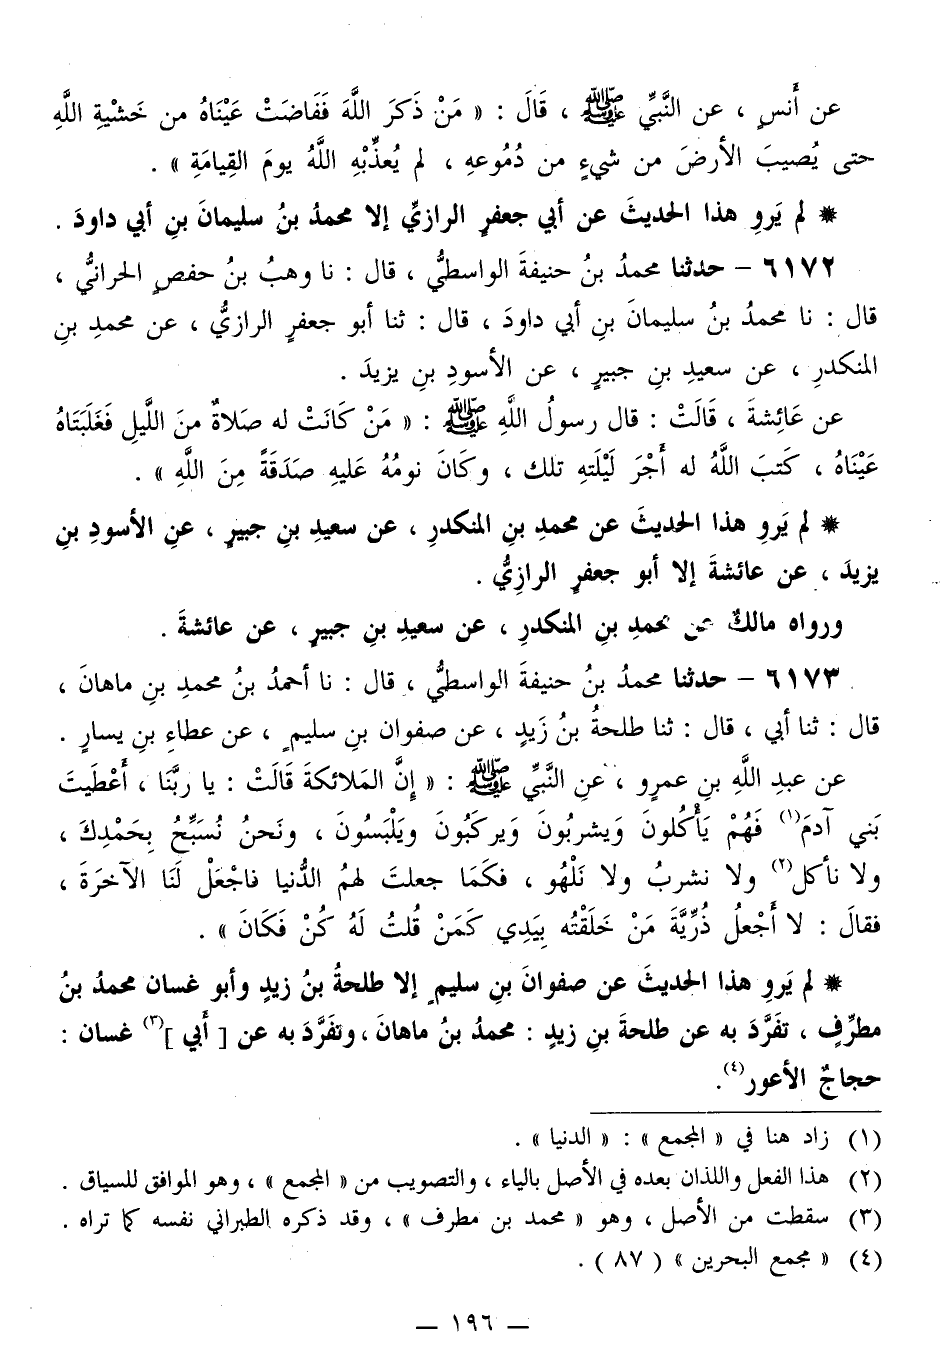 عن أَنسٍ ، عن النَّبِّي ﷺ ، قَالَ : « مَنْ ذَكرَ اللَّهَ فَفَاضَتْ عَيْنَاهُ من خَشْيةِ اللَّهِ
حتى يُصيبَ الأرضَ من شيءٍ من دُمُوعهِ ، لم يُعذِّبْهِ اللَّهُ يومَ القِيامَةِ » .
* لم يَروِ هذا الحديثَ عن أبي جعفرٍ الرازيِّ إلا محمدُ بنُ سليمانَ بنِ أبي داودَ .
٦١٧٢ – حدثنا محمدُ بنُ حنيفةَ الواسطيُّ ، قال : نا وهبُ بنُ حفصٍ الحرانيُّ ،
قال : نا محمدُ بنُ سليمانَ بنِ أبي داودَ ، قال : ثنا أبو جعفرٍ الرازيُّ ، عن محمدِ بنِ
المنكدرِ ، عن سعيدِ بنِ جبيرٍ ، عن الأسودِ بنِ يزيدَ .
عن عَائِشةَ ، قَالَتْ : قال رسولُ اللَّهِ ﷺ : « مَنْ كَانَتْ له صَلاةٌ منَ اللَّيلِ فَغَلَبَتَاهُ
عَيْنَاهُ ، كَتبَ اللَّهُ له أَجْرَ لَيْلَتهِ تلك ، وكَانَ نومُهُ عَليهِ صَدَقَةً مِنَ اللَّهِ » .
* لم يَروِ هذا الحديثَ عن محمدِ بنِ المنكدرِ ، عن سعيدِ بنِ جبيرٍ ، عنِ الأسودِ بنِ
يزيدَ ، عن عائشةَ إلا أبو جعفرٍ الرازِيُّ .
ورواه مالكٌ عن محمدِ بنِ المنكدرِ ، عن سعيدِ بنِ جبيرٍ ، عن عائشةَ .
٦١٧٣ – حدثنا محمدُ بنُ حنيفةَ الواسطيُّ ، قال : نا أحمدُ بنُ محمدِ بنِ ماهانَ ،
قال : ثنا أبي ، قال : ثنا طلحةُ بنُ زَيدٍ ، عن صفوان بنِ سليمٍ ، عن عطاءِ بنِ يسارٍ .
عن عبدِ اللَّهِ بنِ عمرٍو ، عنِ النَّبِّي ﷺ : « إِنَّ المَلائكةَ قَالَتْ : يا ربَّنَا ، أَعْطَيتَ
بَني آدمَ(١) فَهُمْ يَأْكُلونَ وَيشربُونَ وَيركَبُونَ وَيَلْبَسُونَ ، ونَحنُ نُسَبِّحُ بِحَمْدِكَ ،
ولا نأكل(٢) ولا نشربُ ولا نَلْهُو ، فكَمَا جعلتَ لهمُ الدُّنيا فاجْعَلْ لَنَا الآخرَةَ ،
فقالَ : لا أَجْعلُ ذُرِّيَّةَ مَنْ خَلَقْتُه بِيَدِي كَمَنْ قُلتُ لَهُ كُنْ فَكَانَ » .
* لم يَروِ هذا الحديثَ عن صفوانَ بنِ سليمٍ إلا طلحةُ بنُ زيدٍ وأبو غسان محمدُ بنُ
مطرِّفٍ ، تفَرَّدَ به عن طلحةَ بنِ زيدٍ : محمدُ بنُ ماهانَ ، وتفَرَّدَ به عن [ أَبي ](٣) غسان :
حجاجٌ الأعور(٤).
(١) زاد هنا في « المجمع » : « الدنيا » .
(٢) هذا الفعل واللذان بعده في الأصل بالياء ، والتصويب من « المجمع » ، وهو الموافق للسياق .
(٣) سقطت من الأصل ، وهو « محمد بن مطرف » ، وقد ذكره الطبراني نفسه كما تراه .
(٤) « مجمع البحرين » ( ٨٧ ) .
— ١٩٦ —